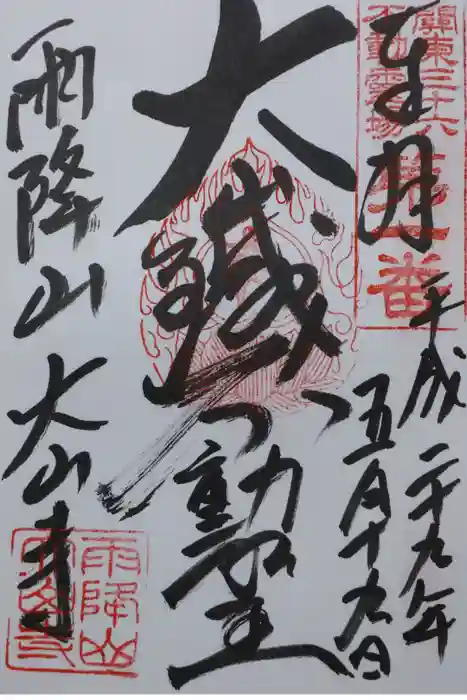 奉拝
關東三十六
不動霊場
第一番
平成二十九年
五月十九日
大鐵不動堂
雨降山 大山寺
雨降山